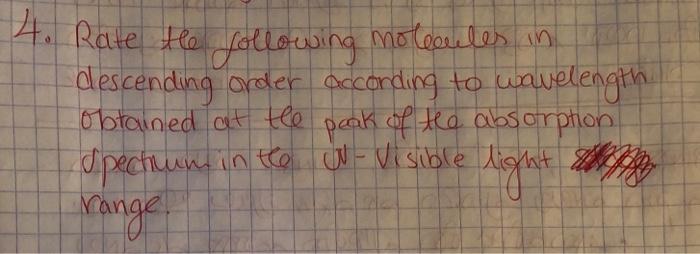 4. Rate the following molecules in
descending order according to wavelength
obtained at the peak of the absorption
spectrum in the UV-Visible light
range.